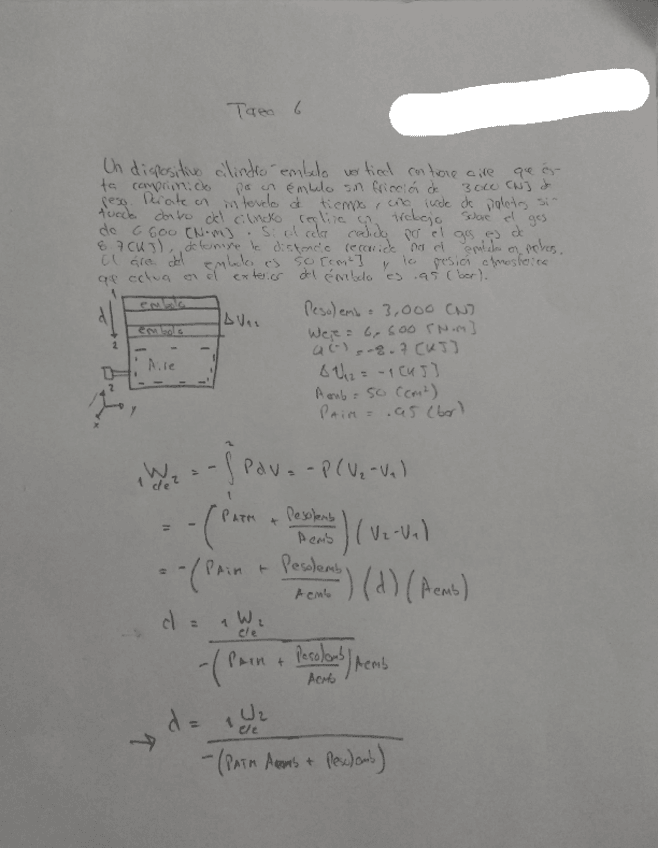 Tarea 6
Un dispositivo cilindro-embolo vertical contiene aire que es-
ta comprimido por un émbolo sin fricción de 3000 [N] de
peso. Durante un intervalo de tiempo, una rueda de paletas si-
tuada dentro del cilindro realiza un trabajo sobre el gas
de 6 600 [N·m]. Si el calor cedido por el gas es de
8.7 [KJ], determine la distancia recorrida por el émbolo en
El área del embolo es 50 [cm²] y la presión atmosférica
que actua en el exterior del émbolo es .95 (bar).
1
embolo
d
ΔV12
embolo
2
Aire
z
x
y
Peso)emb = 3,000 [N]
Weje = 6,600 [N·m]
Q(-) = -8.7 [KJ]
ΔU12 = -1 [KJ]
Aemb = 50 (cm²)
PATM = .95 (bar)
1W2 c/e = -∫ PdV = -P(V2-V1)
= -(PATM + Peso)emb/Aemb)(V2-V1)
= -(PATM + Peso)emb/Aemb)(d)(Aemb)
d = 1W2 c/e / -(PATM + Peso)emb/Aemb)Aemb
→ d = 1W2 c/e / -(PATM Aemb + Peso)emb)